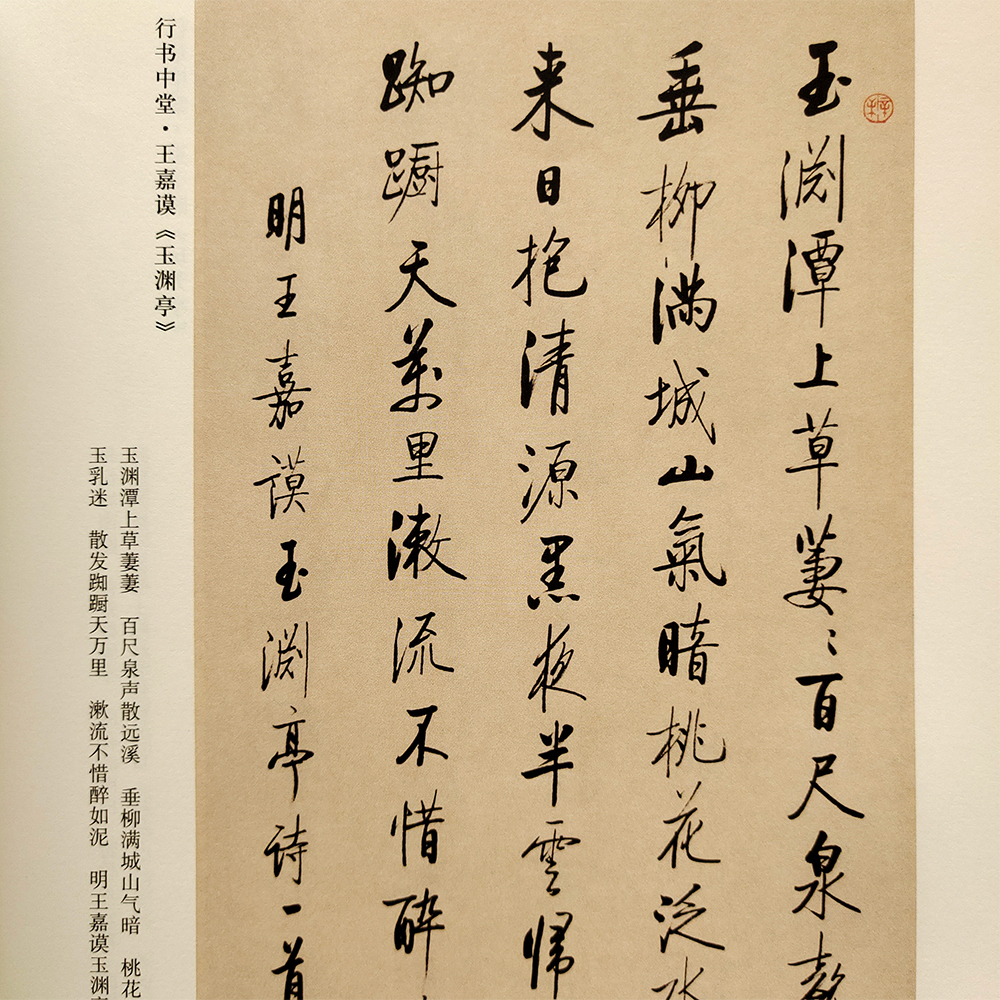 玉淵潭上草萋〻百尺泉
垂柳滿城山氣暗桃花泛水
来日抱清源黑夜半雲歸
踟蹰天萬里漱流不惜醉
明王嘉謨玉淵亭詩一首
行书中堂·王嘉谟《玉渊亭》
玉渊潭上草萋萋 百尺泉声散远溪 垂柳满城山气暗 桃花
玉乳迷 散发踟蹰天万里 漱流不惜醉如泥 明王嘉谟玉渊